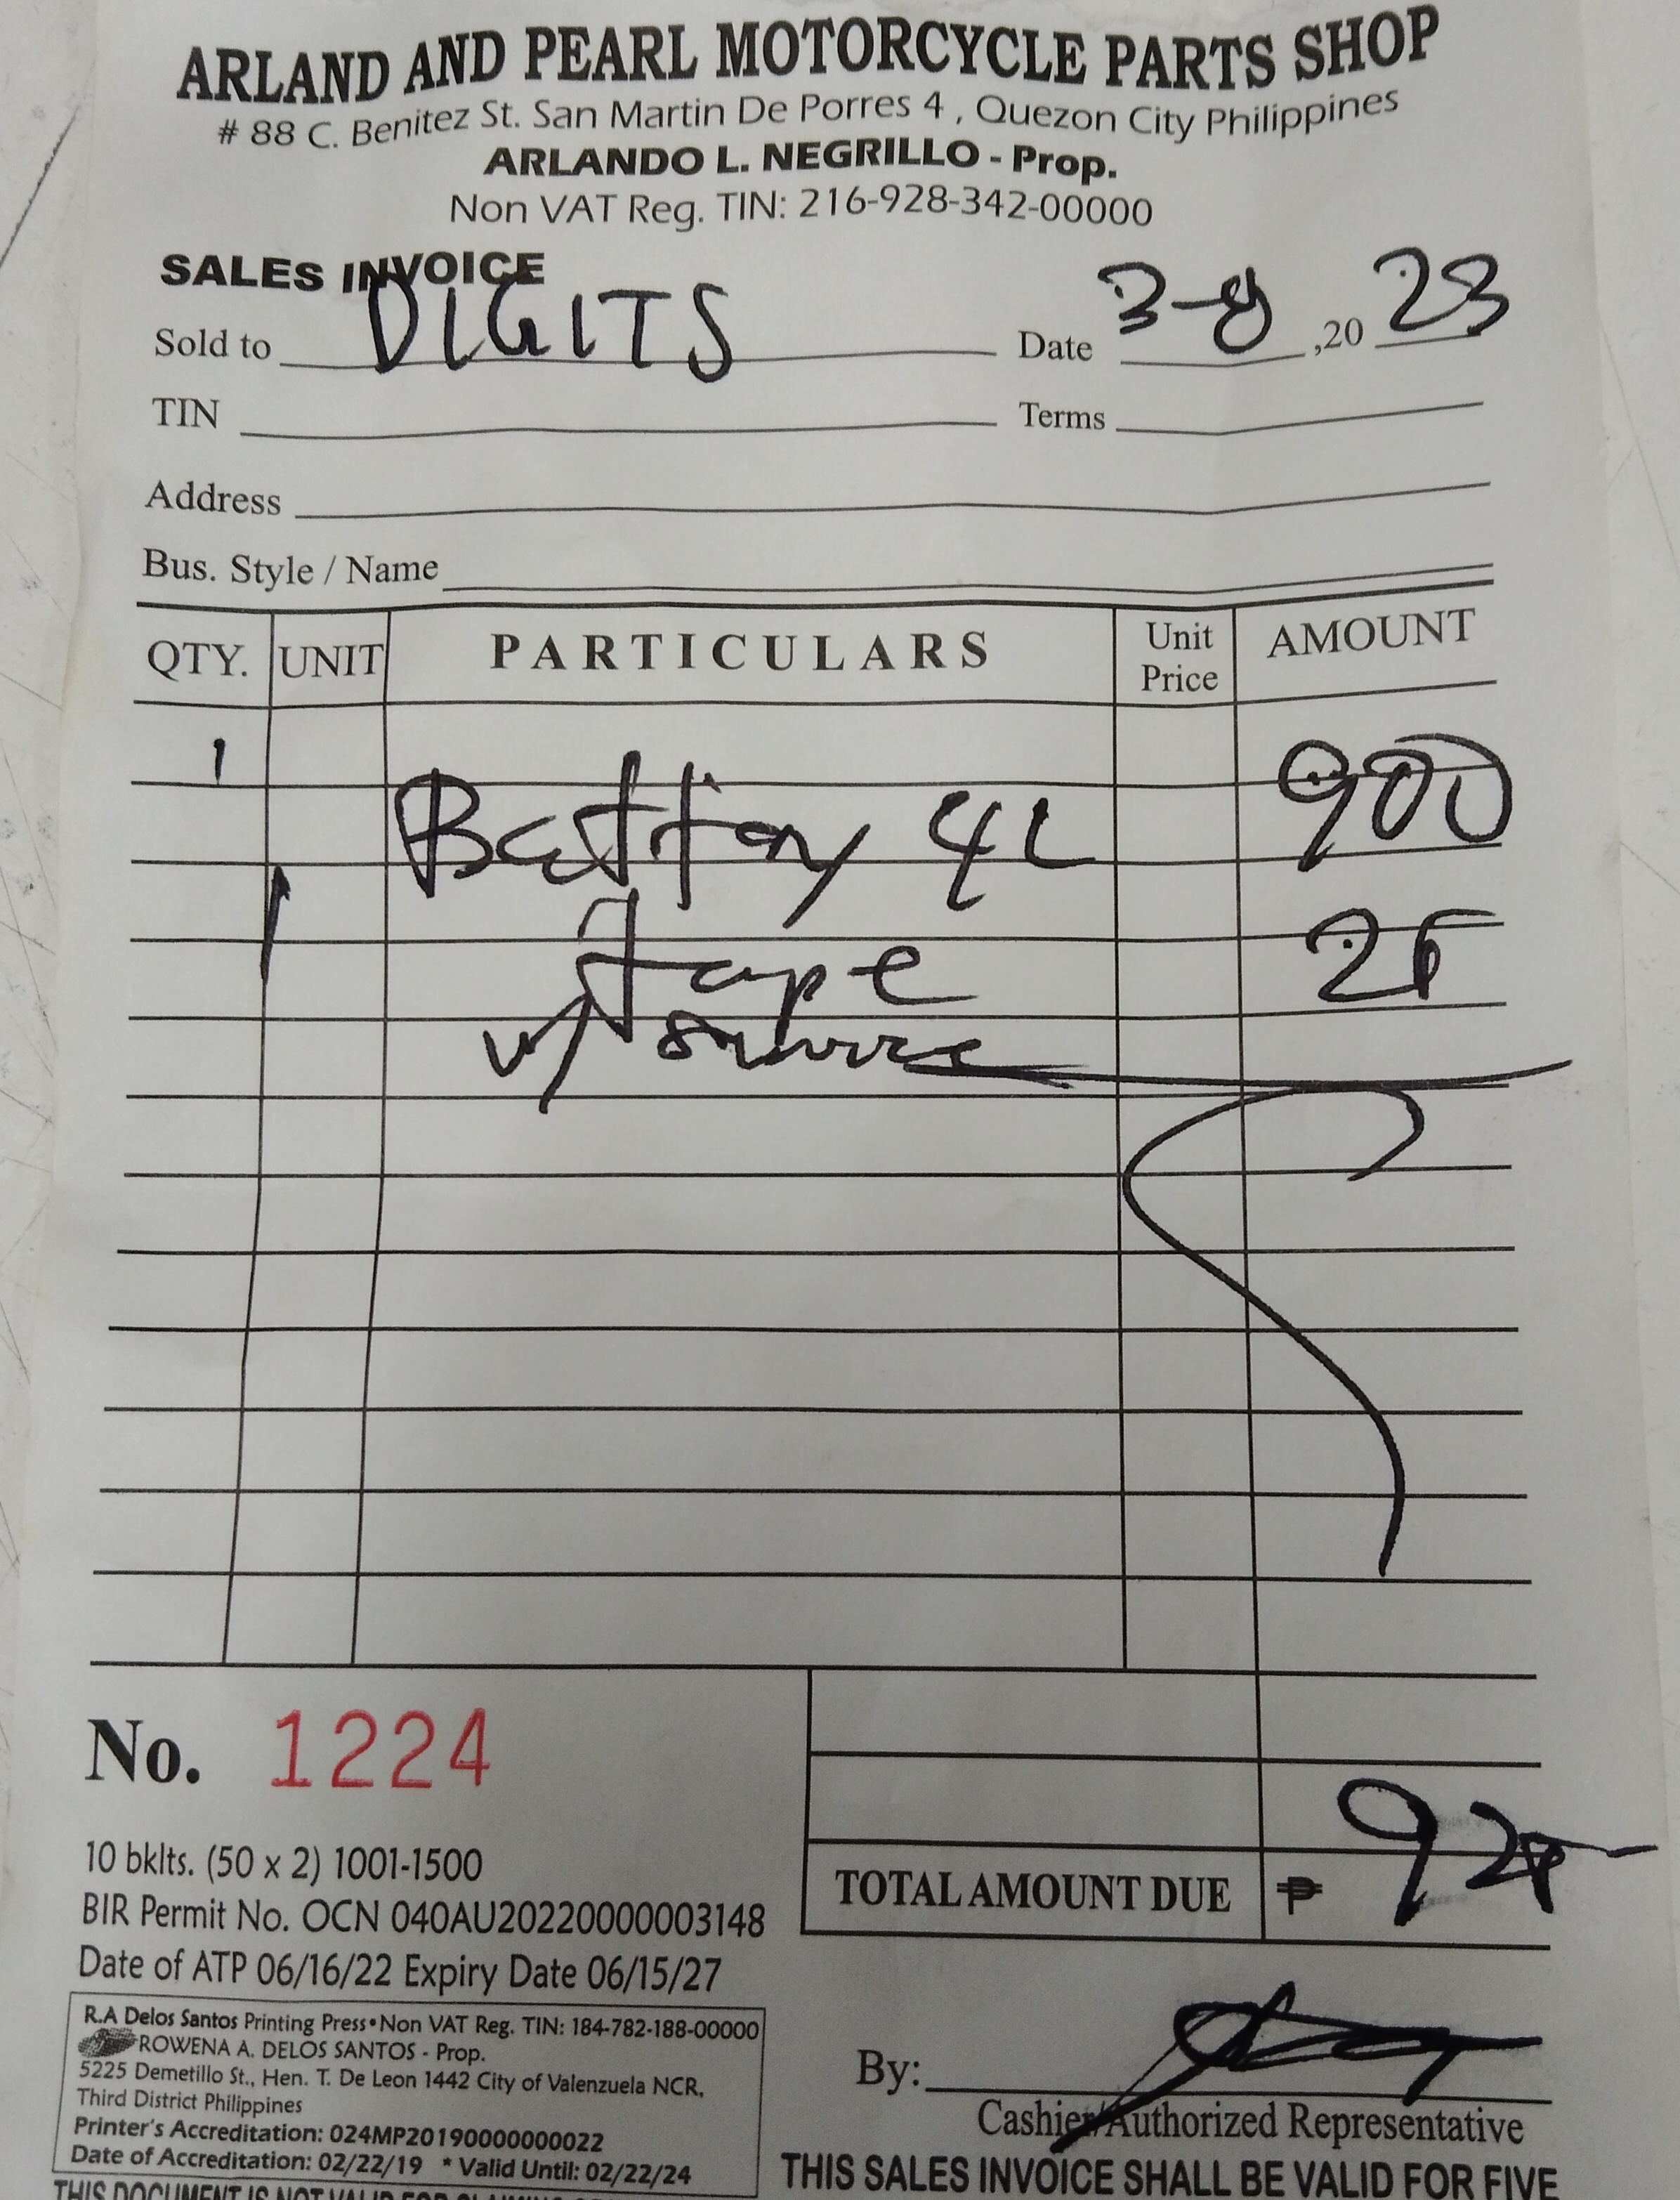 ARLAND AND PEARL MOTORCYCLE PARTS SHOP
# 88 C. Benitez St. San Martin De Porres 4 , Quezon City Philippines
ARLANDO L. NEGRILLO - Prop.
Non VAT Reg. TIN: 216-928-342-00000
SALES INVOICE
Sold to DIGITS Date 3-8 ,20 23
TIN Terms
Address
Bus. Style / Name
QTY. UNIT PARTICULARS Unit Price AMOUNT
1 Battery 4L 900
1 tape 25
w/ service
No. 1224
10 bklts. (50 x 2) 1001-1500
BIR Permit No. OCN 040AU20220000003148
Date of ATP 06/16/22 Expiry Date 06/15/27
TOTAL AMOUNT DUE ₱ 925
R.A Delos Santos Printing Press•Non VAT Reg. TIN: 184-782-188-00000
ROWENA A. DELOS SANTOS - Prop.
5225 Demetillo St., Hen. T. De Leon 1442 City of Valenzuela NCR,
Third District Philippines
Printer's Accreditation: 024MP20190000000022
Date of Accreditation: 02/22/19 * Valid Until: 02/22/24
By:
Cashier/Authorized Representative
THIS SALES INVOICE SHALL BE VALID FOR FIVE
THIS DOCUMENT IS NOT VALID FOR